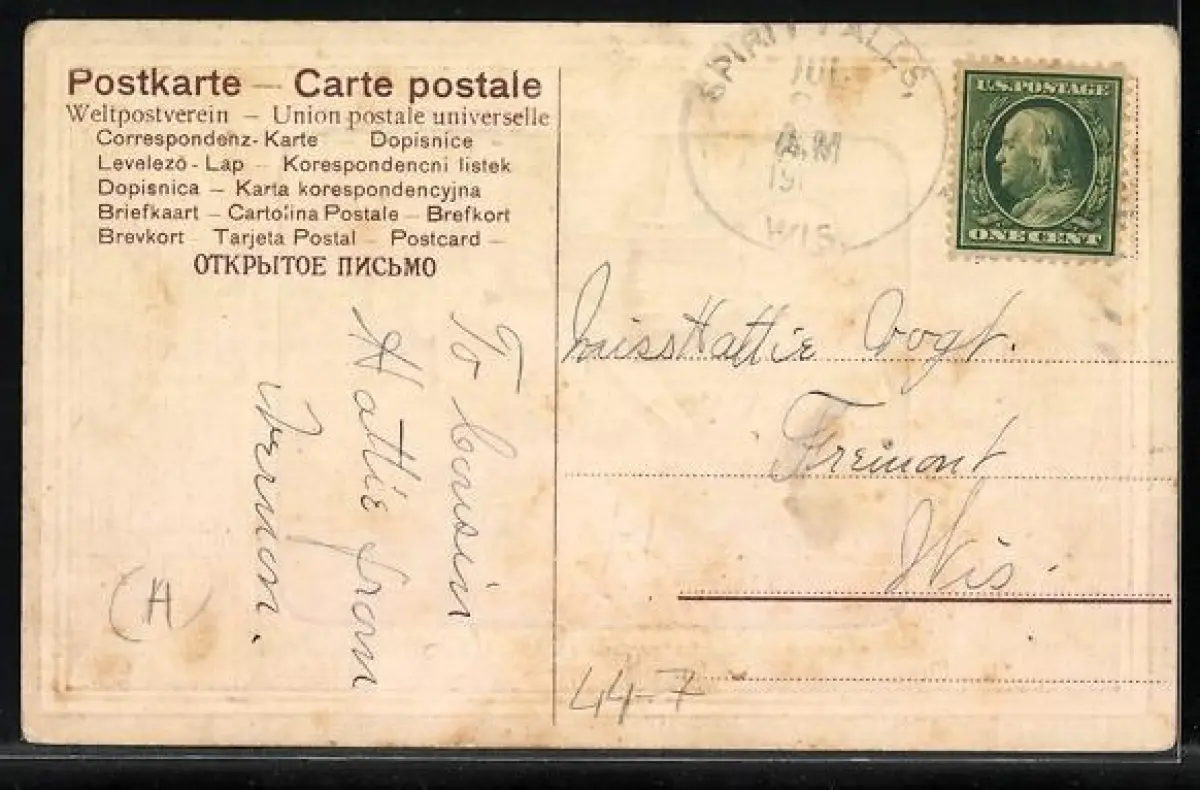 Postkarte — Carte postale
Weltpostverein — Union postale universelle
Correspondenz-Karte   Dopisnice –
Levelező - Lap – Korespondencni listek
Dopisnica – Karta korespondencyjna
Briefkaart – Cartolina Postale – Brefkort
Brevkort – Tarjeta Postal – Postcard –
ОТКРЫТОЕ ПИСЬМО
SPIRIT FALLS,
JUL
A.M
WIS.
U.S. POSTAGE
ONE CENT
Miss Hattie Vogt.
Fremont
Wis.
To Cousin
Hattie from
Vernon.
H
44-7